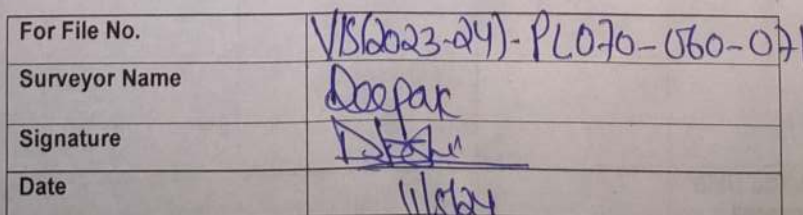 For File No. VIS(2023-24)-PL070-060-071
Surveyor Name Deepak
Signature
Date 11/5/24